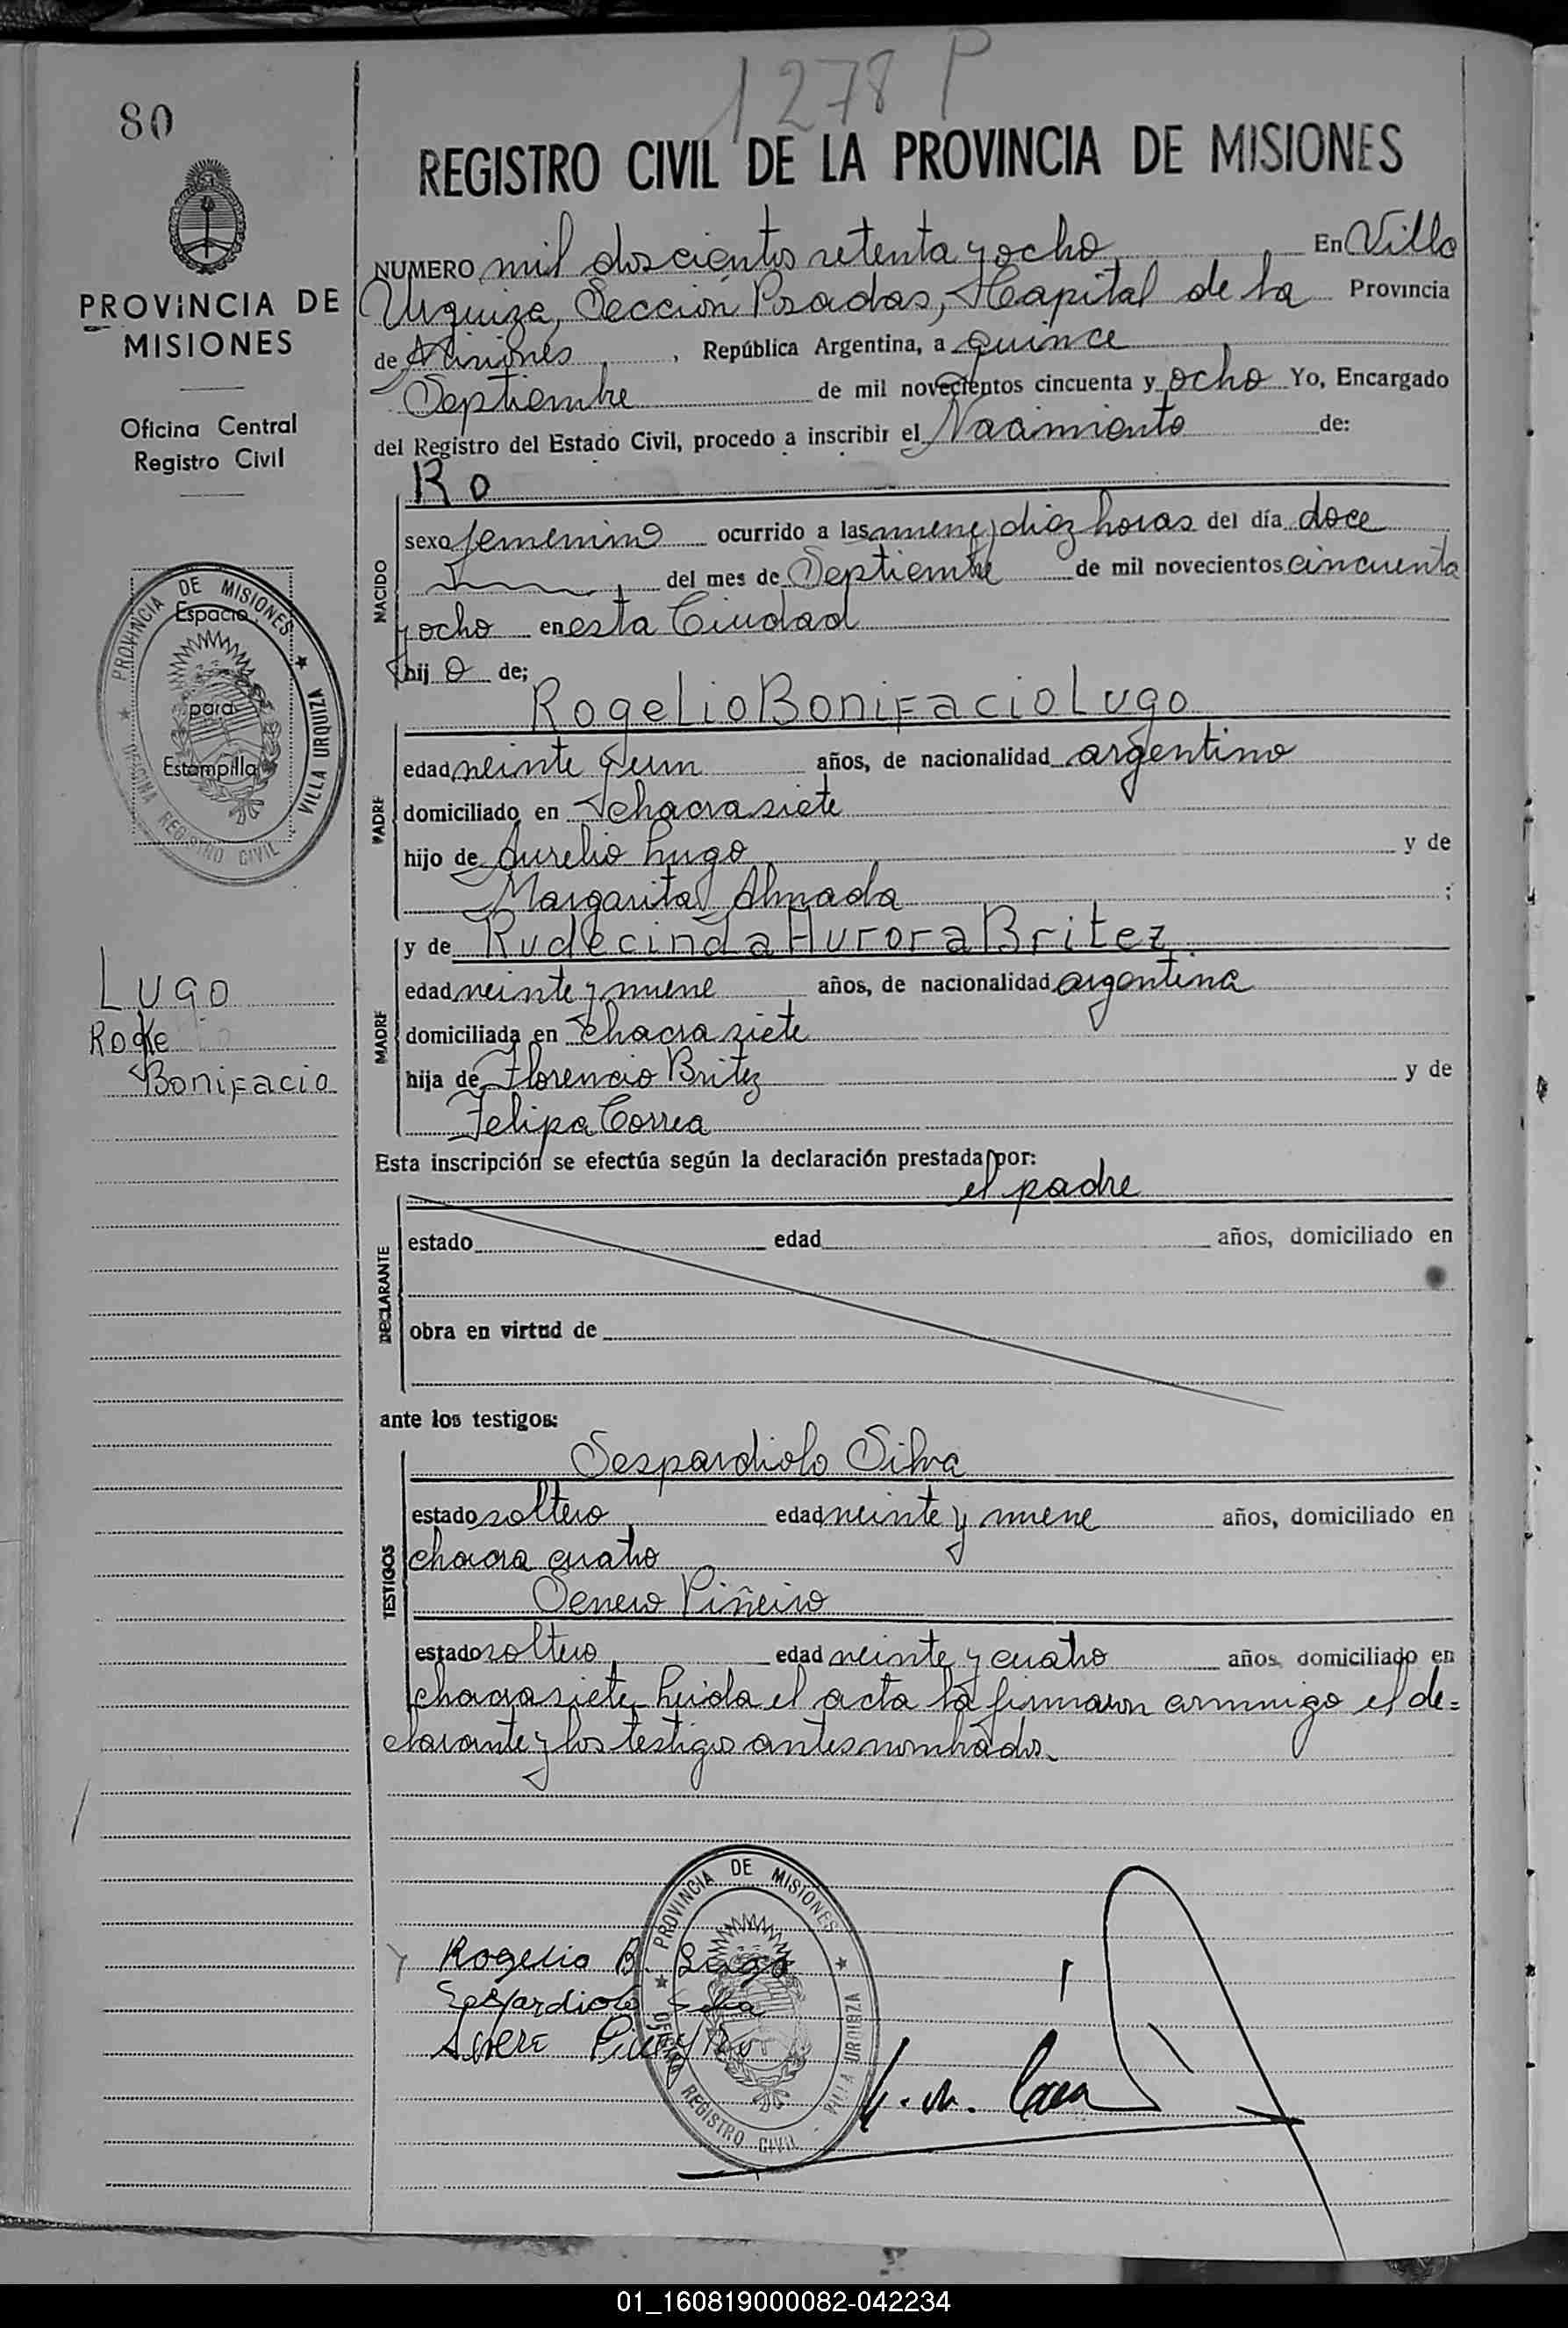 1278 P
80
REGISTRO CIVIL DE LA PROVINCIA DE MISIONES
NUMERO mil doscientos setenta y ocho En Villa
Urquiza, Sección Posadas, Capital de la Provincia
de Misiones, República Argentina, a quince
Septiembre de mil novecientos cincuenta y ocho Yo, Encargado
del Registro del Estado Civil, procedo a inscribir el Nacimiento de:
PROVINCIA DE
MISIONES
Oficina Central
Registro Civil
PROVINCIA DE MISIONES
VILLA URQUIZA
OFICINA REGISTRO CIVIL
Espacio
para
Estampilla
LUGO
Roke
Bonifacio
NACIDO
Ro
sexo femenino ocurrido a las nueve y diez horas del día doce
del mes de Septiembre de mil novecientos cincuenta
y ocho en esta Ciudad
hijo de;
PADRE
Rogelio Bonifacio Lugo
edad veinte y un años, de nacionalidad argentino
domiciliado en chacra siete
hijo de Aurelio Lugo y de
Margarita Almada ;
MADRE
y de Rudecinda Aurora Britez
edad veinte y nueve años, de nacionalidad argentina
domiciliada en chacra siete
hija de Florencio Britez y de
Felipa Correa
Esta inscripción se efectúa según la declaración prestada por:
el padre
DECLARANTE
estado edad años, domiciliado en
obra en virtud de
ante los testigos:
TESTIGOS
Sespardiolo Silva
estado soltero edad veinte y nueve años, domiciliado en
chacra cuatro
Senero Piñeiro
estado soltero edad veinte y cuatro años, domiciliado en
chacra siete leida el acta la firmaron conmigo el de=
clarante y los testigos antes nombrados.
Rogelio B. Lugo
Sespardiolo Silva
PROVINCIA DE MISIONES
VILLA URQUIZA
OFICINA REGISTRO CIVIL
01_160819000082-042234